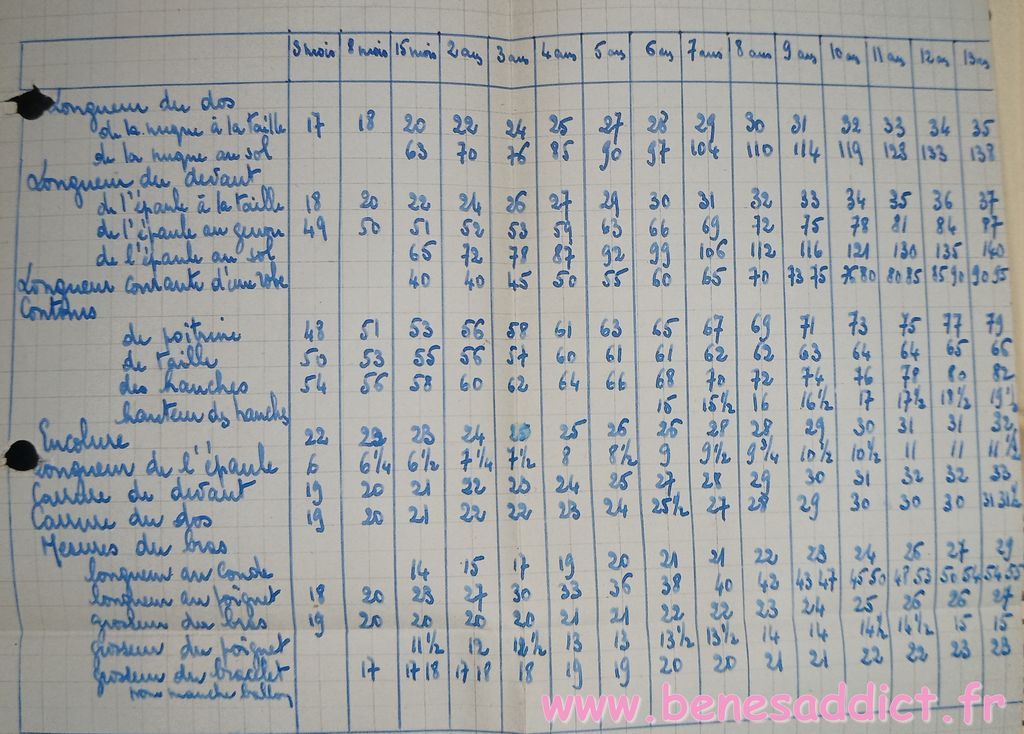 3 mois 8 mois 15 mois 2 ans 3 ans 4 ans 5 ans 6 ans 7 ans 8 ans 9 ans 10 ans 11 ans 12 ans 13 ans
Longueur du dos
de la nuque à la taille 17 18 20 22 24 25 27 28 29 30 31 32 33 34 35
de la nuque au sol 63 70 76 85 90 97 104 110 114 119 128 133 138
Longueur du devant
de l'épaule à la taille 18 20 22 24 26 27 29 30 31 32 33 34 35 36 37
de l'épaule au genou 49 50 51 52 53 59 63 66 69 72 75 78 81 84 87
de l'épaule au sol 65 72 78 87 92 99 106 112 116 121 130 135 140
Longueur courante d'une robe 40 40 45 50 55 60 65 70 73 75 76 80 80 85 85 90 90 95
Contours
de poitrine 48 51 53 56 58 61 63 65 67 69 71 73 75 77 79
de taille 50 53 55 56 57 60 61 61 62 62 63 64 64 65 66
des hanches 54 56 58 60 62 64 66 68 70 72 74 76 78 80 82
hauteur des hanches 15 15½ 16 16½ 17 17½ 18½ 19½
Encolure 22 22 23 24 25 25 26 26 28 28 29 30 31 31 32
Longueur de l'épaule 6 6¼ 6½ 7¼ 7½ 8 8½ 9 9½ 9¾ 10½ 10½ 11 11 11½
Carrure du devant 19 20 21 22 23 24 25 27 28 29 30 31 32 32 33
Carrure du dos 19 20 21 22 22 23 24 25½ 27 28 29 30 30 30 31 31½
Mesures du bras
longueur au coude 14 15 17 19 20 21 21 22 23 24 26 27 29
longueur au poignet 18 20 23 27 30 33 36 38 40 43 43 47 45 50 48 53 50 54 54 55
grosseur du bras 19 20 20 20 20 21 21 22 22 23 24 25 26 26 27
grosseur du poignet 11½ 12 12½ 13 13 13½ 13½ 14 14 14½ 14½ 15 15
grosseur du bracelet 17 17 18 17 18 18 19 19 20 20 21 21 22 22 23 23
pour manche ballon
www.benesaddict.fr